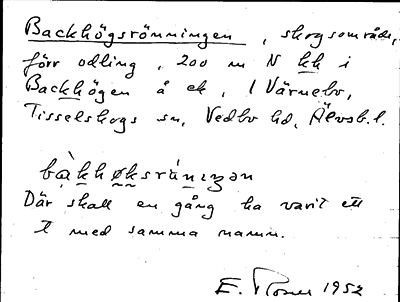 Backhögsrönningen, skogsområde,
förr odling, 200 m N kk i
Backhögen å ek, 1 Värnebo,
Tisselskogs sn, Vedbo hd, Älvsb. l.
bàkhøksrǻniŋən
Där skall en gång ha varit ett
t med samma namn.
E. 1952